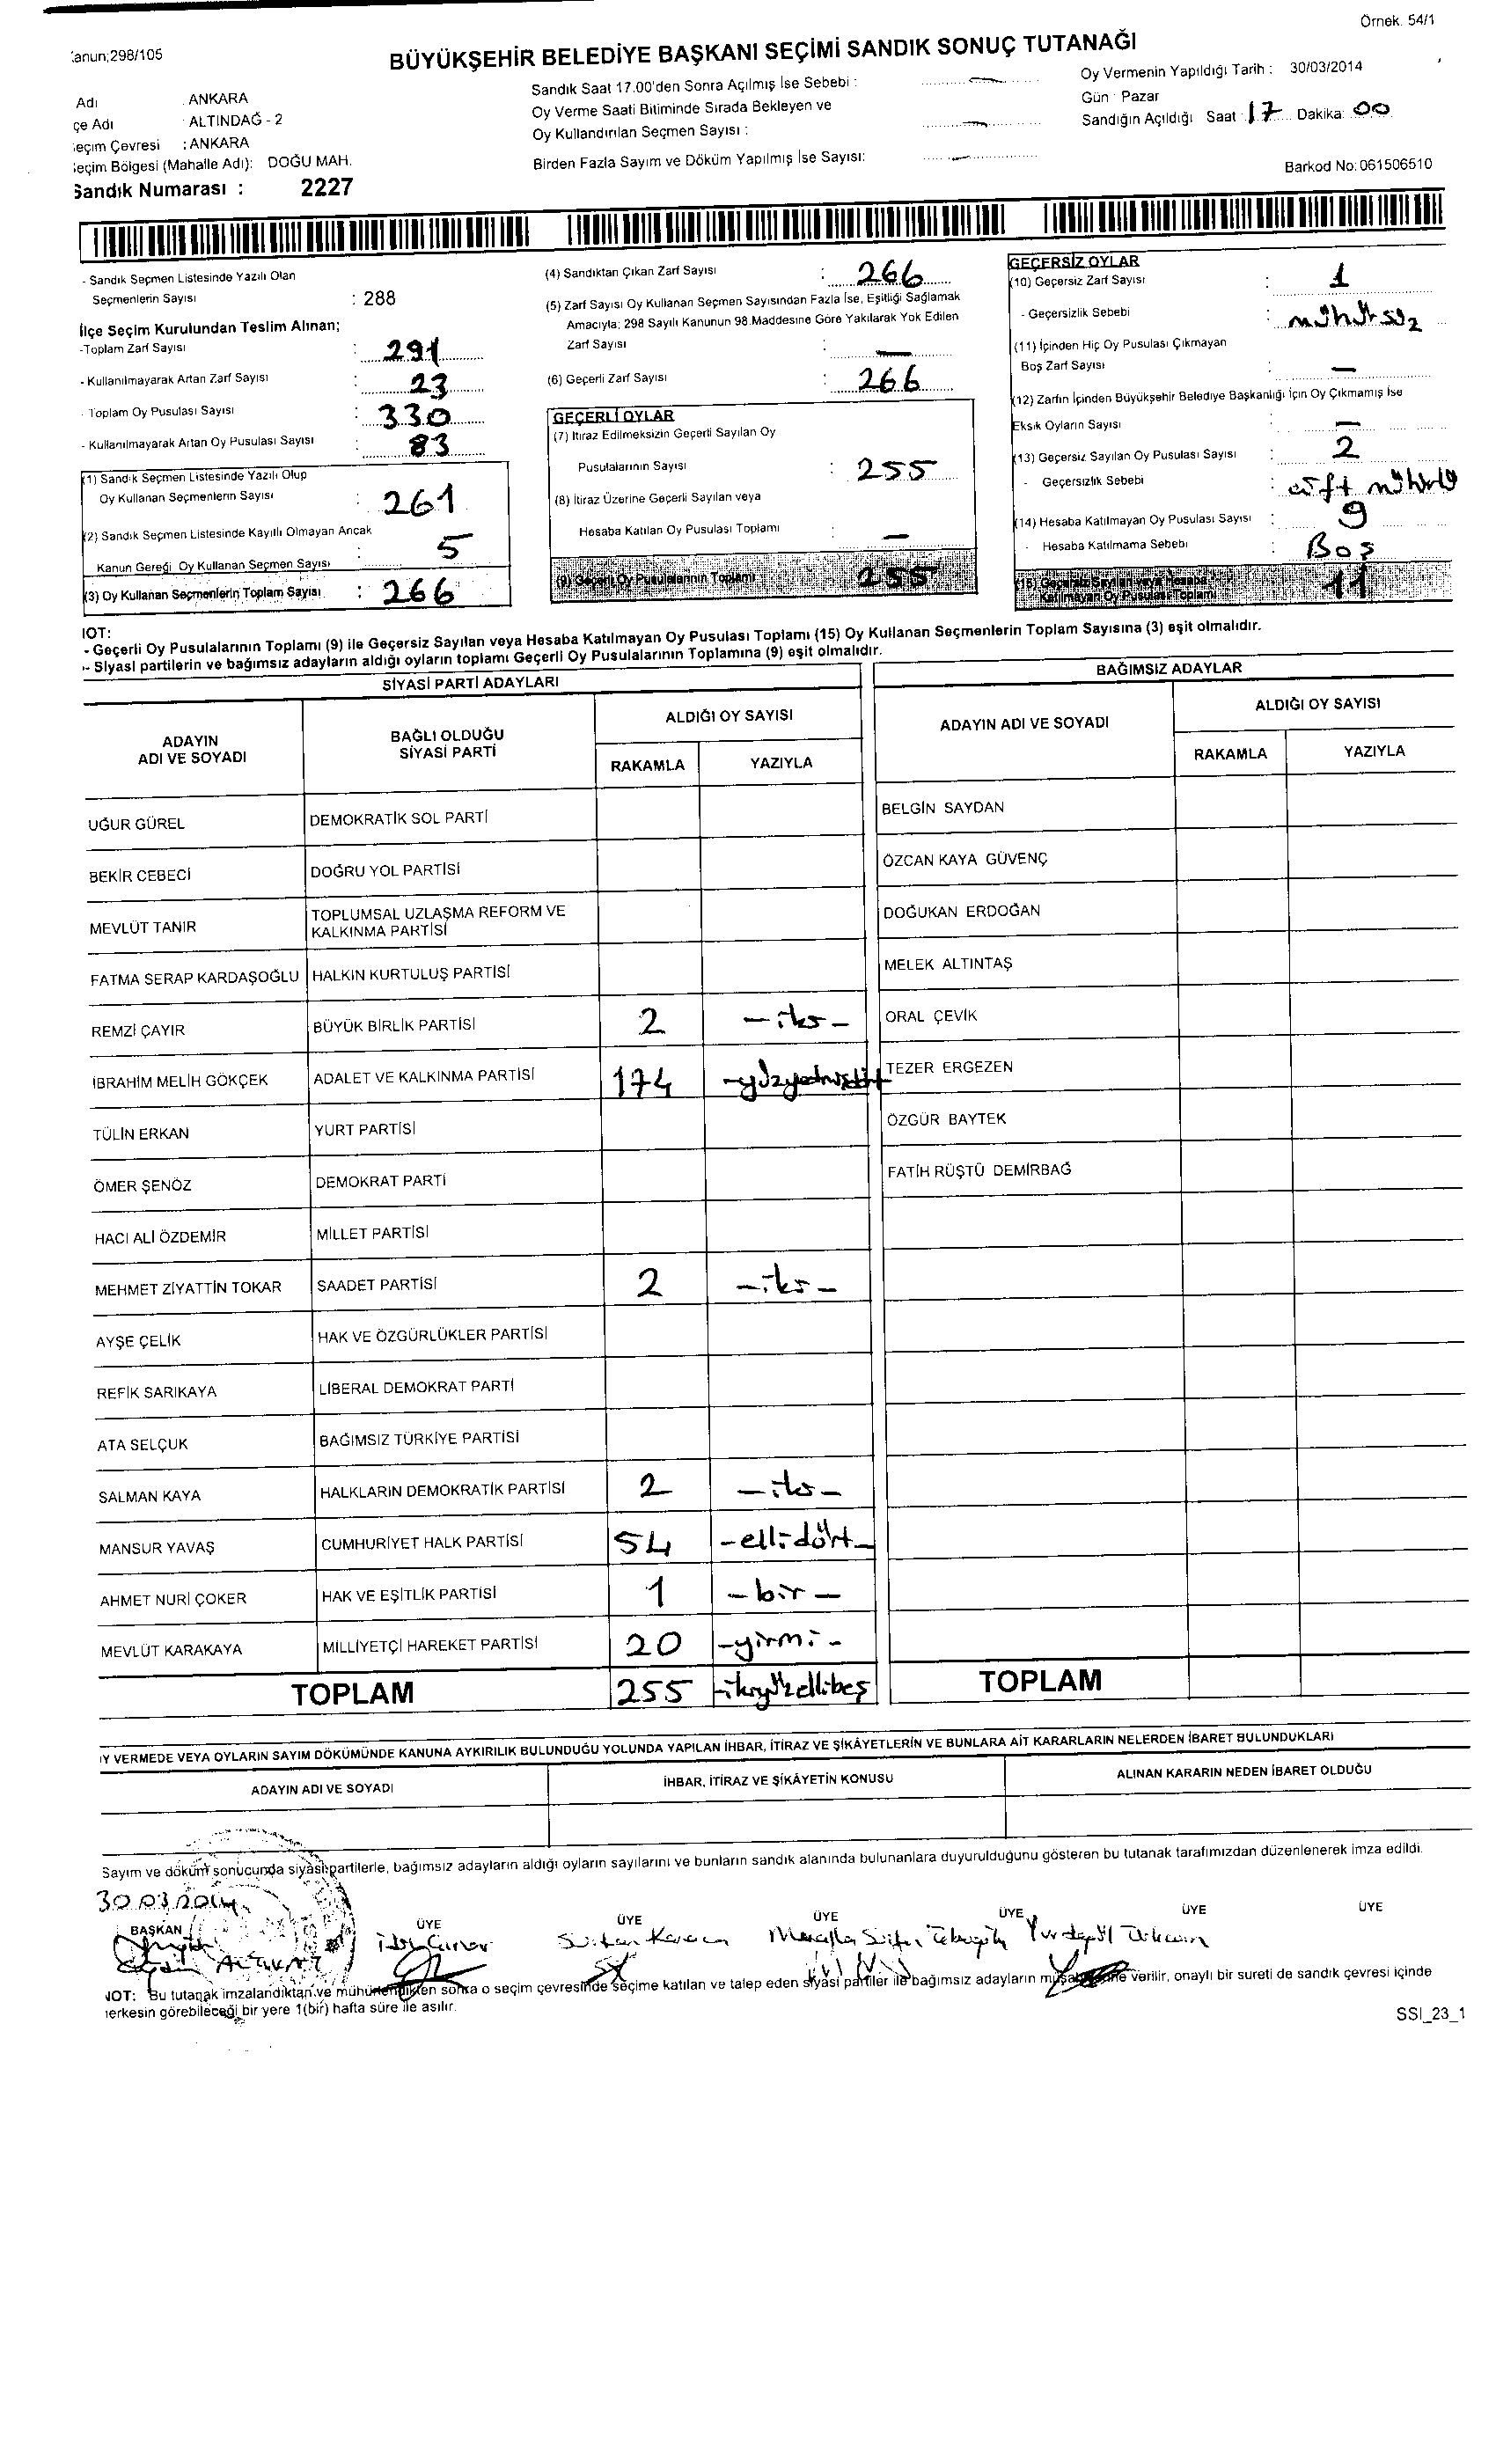 Örnek. 54/1
anun;298/105
BÜYÜKŞEHİR BELEDİYE BAŞKANI SEÇİMİ SANDIK SONUÇ TUTANAĞI
Adı : ANKARA
çe Adı : ALTINDAĞ - 2
eçim Çevresi : ANKARA
eçim Bölgesi (Mahalle Adı): DOĞU MAH.
Sandık Numarası : 2227
Sandık Saat 17.00'den Sonra Açılmış İse Sebebi : —
Oy Verme Saati Bitiminde Sırada Bekleyen ve
Oy Kullandırılan Seçmen Sayısı : —
Birden Fazla Sayım ve Döküm Yapılmış İse Sayısı: —
Oy Vermenin Yapıldığı Tarih : 30/03/2014
Gün : Pazar
Sandığın Açıldığı Saat : 17 Dakika: 00
Barkod No: 061506510
- Sandık Seçmen Listesinde Yazılı Olan
Seçmenlerin Sayısı : 288
İlçe Seçim Kurulundan Teslim Alınan;
-Toplam Zarf Sayısı : 291
- Kullanılmayarak Artan Zarf Sayısı : 23
- Toplam Oy Pusulası Sayısı : 330
- Kullanılmayarak Artan Oy Pusulası Sayısı : 83
(1) Sandık Seçmen Listesinde Yazılı Olup
Oy Kullanan Seçmenlerin Sayısı : 261
(2) Sandık Seçmen Listesinde Kayıtlı Olmayan Ancak
Kanun Gereği Oy Kullanan Seçmen Sayısı : 5
(3) Oy Kullanan Seçmenlerin Toplam Sayısı : 266
(4) Sandıktan Çıkan Zarf Sayısı : 266
(5) Zarf Sayısı Oy Kullanan Seçmen Sayısından Fazla İse, Eşitliği Sağlamak
Amacıyla; 298 Sayılı Kanunun 98.Maddesine Göre Yakılarak Yok Edilen
Zarf Sayısı : —
(6) Geçerli Zarf Sayısı : 266
GEÇERLİ OYLAR
(7) İtiraz Edilmeksizin Geçerli Sayılan Oy
Pusulalarının Sayısı : 255
(8) İtiraz Üzerine Geçerli Sayılan veya
Hesaba Katılan Oy Pusulası Toplamı : —
(9) Geçerli Oy Pusulalarının Toplamı 255
GEÇERSİZ OYLAR
(10) Geçersiz Zarf Sayısı : 1
- Geçersizlik Sebebi : mühürsüz
(11) İçinden Hiç Oy Pusulası Çıkmayan
Boş Zarf Sayısı : —
(12) Zarfın İçinden Büyükşehir Belediye Başkanlığı İçin Oy Çıkmamış İse
Eksik Oyların Sayısı : —
(13) Geçersiz Sayılan Oy Pusulası Sayısı : 2
- Geçersizlik Sebebi : çift mühürlü
(14) Hesaba Katılmayan Oy Pusulası Sayısı : 9
- Hesaba Katılmama Sebebi : Boş
(15) Geçersiz Sayılan veya Hesaba
Katılmayan Oy Pusulası Toplamı 11
NOT:
- Geçerli Oy Pusulalarının Toplamı (9) ile Geçersiz Sayılan veya Hesaba Katılmayan Oy Pusulası Toplamı (15) Oy Kullanan Seçmenlerin Toplam Sayısına (3) eşit olmalıdır.
- Siyasi partilerin ve bağımsız adayların aldığı oyların toplamı Geçerli Oy Pusulalarının Toplamına (9) eşit olmalıdır.
SİYASİ PARTİ ADAYLARI
ADAYIN ADI VE SOYADI
BAĞLI OLDUĞU SİYASİ PARTİ
ALDIĞI OY SAYISI
RAKAMLA YAZIYLA
UĞUR GÜREL DEMOKRATİK SOL PARTİ
BEKİR CEBECİ DOĞRU YOL PARTİSİ
MEVLÜT TANIR TOPLUMSAL UZLAŞMA REFORM VE KALKINMA PARTİSİ
FATMA SERAP KARDAŞOĞLU HALKIN KURTULUŞ PARTİSİ
REMZİ ÇAYIR BÜYÜK BİRLİK PARTİSİ 2 - iki -
İBRAHİM MELİH GÖKÇEK ADALET VE KALKINMA PARTİSİ 174 - yüzyetmişdört
TÜLİN ERKAN YURT PARTİSİ
ÖMER ŞENÖZ DEMOKRAT PARTİ
HACI ALİ ÖZDEMİR MİLLET PARTİSİ
MEHMET ZİYATTİN TOKAR SAADET PARTİSİ 2 - iki -
AYŞE ÇELİK HAK VE ÖZGÜRLÜKLER PARTİSİ
REFİK SARIKAYA LİBERAL DEMOKRAT PARTİ
ATA SELÇUK BAĞIMSIZ TÜRKİYE PARTİSİ
SALMAN KAYA HALKLARIN DEMOKRATİK PARTİSİ 2 - iki -
MANSUR YAVAŞ CUMHURİYET HALK PARTİSİ 54 - elli dört -
AHMET NURİ ÇOKER HAK VE EŞİTLİK PARTİSİ 1 - bir -
MEVLÜT KARAKAYA MİLLİYETÇİ HAREKET PARTİSİ 20 - yirmi -
TOPLAM 255 - ikiyüzellibeş
BAĞIMSIZ ADAYLAR
ADAYIN ADI VE SOYADI
ALDIĞI OY SAYISI
RAKAMLA YAZIYLA
BELGİN SAYDAN
ÖZCAN KAYA GÜVENÇ
DOĞUKAN ERDOĞAN
MELEK ALTINTAŞ
ORAL ÇEVİK
TEZER ERGEZEN
ÖZGÜR BAYTEK
FATİH RÜŞTÜ DEMİRBAĞ
TOPLAM
Y VERMEDE VEYA OYLARIN SAYIM DÖKÜMÜNDE KANUNA AYKIRILIK BULUNDUĞU YOLUNDA YAPILAN İHBAR, İTİRAZ VE ŞİKÂYETLERİN VE BUNLARA AİT KARARLARIN NELERDEN İBARET BULUNDUKLARI
ADAYIN ADI VE SOYADI İHBAR, İTİRAZ VE ŞİKÂYETİN KONUSU ALINAN KARARIN NEDEN İBARET OLDUĞU
Sayım ve döküm sonucunda siyasi partilerle, bağımsız adayların aldığı oyların sayılarını ve bunların sandık alanında bulunanlara duyurulduğunu gösteren bu tutanak tarafımızdan düzenlenerek imza edildi.
30.03.2014
BAŞKAN ÜYE ÜYE ÜYE ÜYE ÜYE ÜYE
Sultan Karaca
NOT: Bu tutanak imzalandıktan ve mühürlendikten sonra o seçim çevresinde seçime katılan ve talep eden siyasi partiler ile bağımsız adayların müşahitlerine verilir, onaylı bir sureti de sandık çevresi içinde
herkesin görebileceği bir yere 1(bir) hafta süre ile asılır.
SSI_23_1